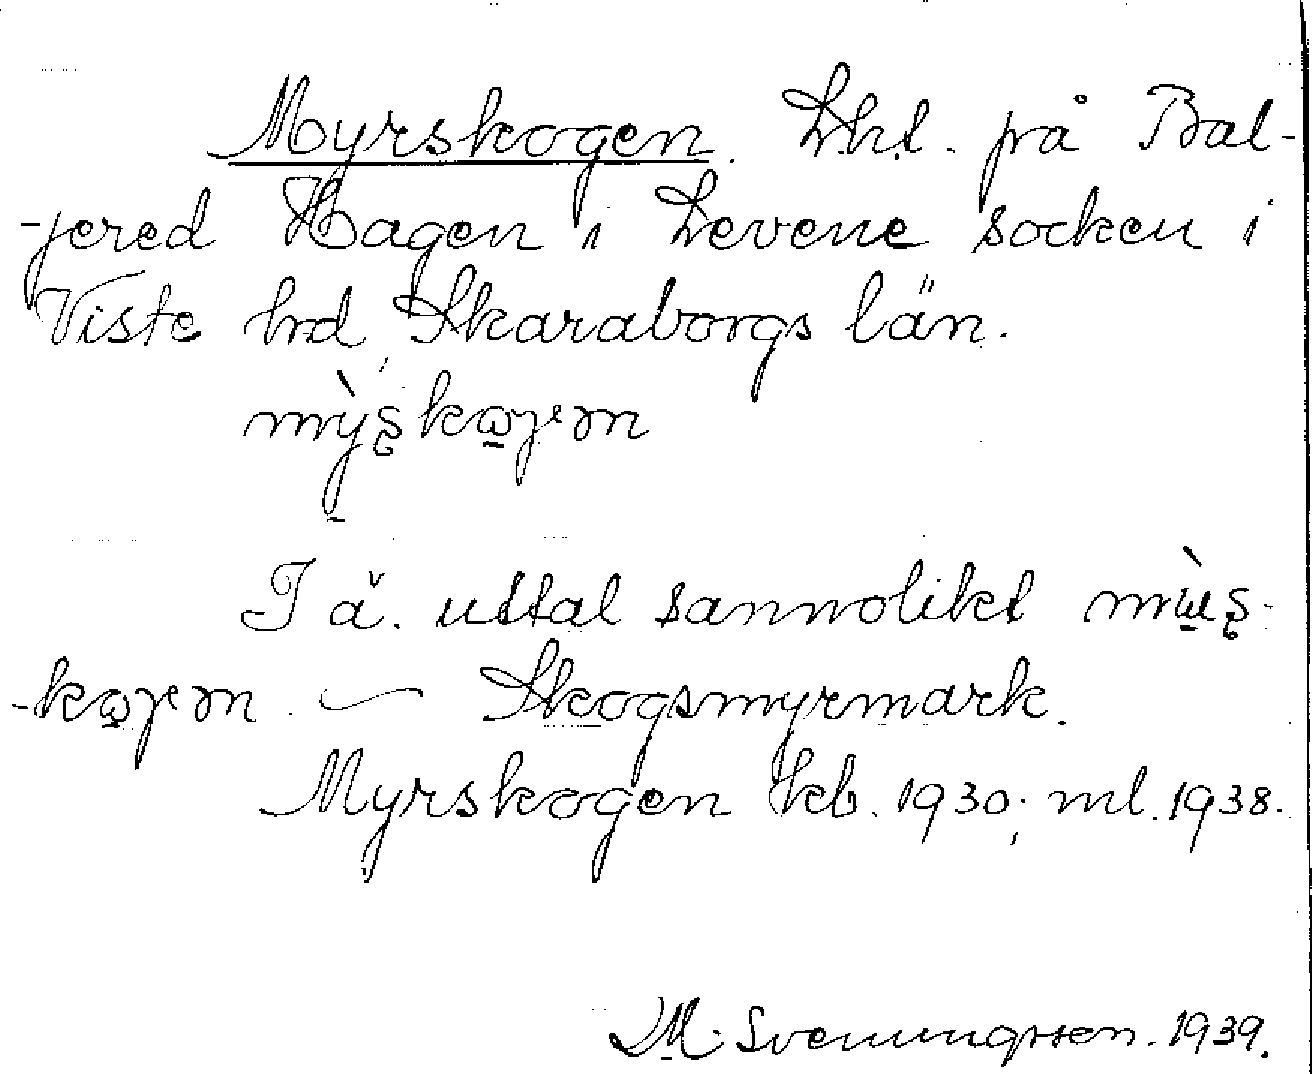 Myrskogen. Lht. på Bal-
-jered Hagen i Levene socken i
Viste hd, Skaraborgs län.
I ä. uttal sannolikt
Skogsmyrmark.
Myrskogen kb. 1930; ml. 1938.
M. Svenungsson. 1939.